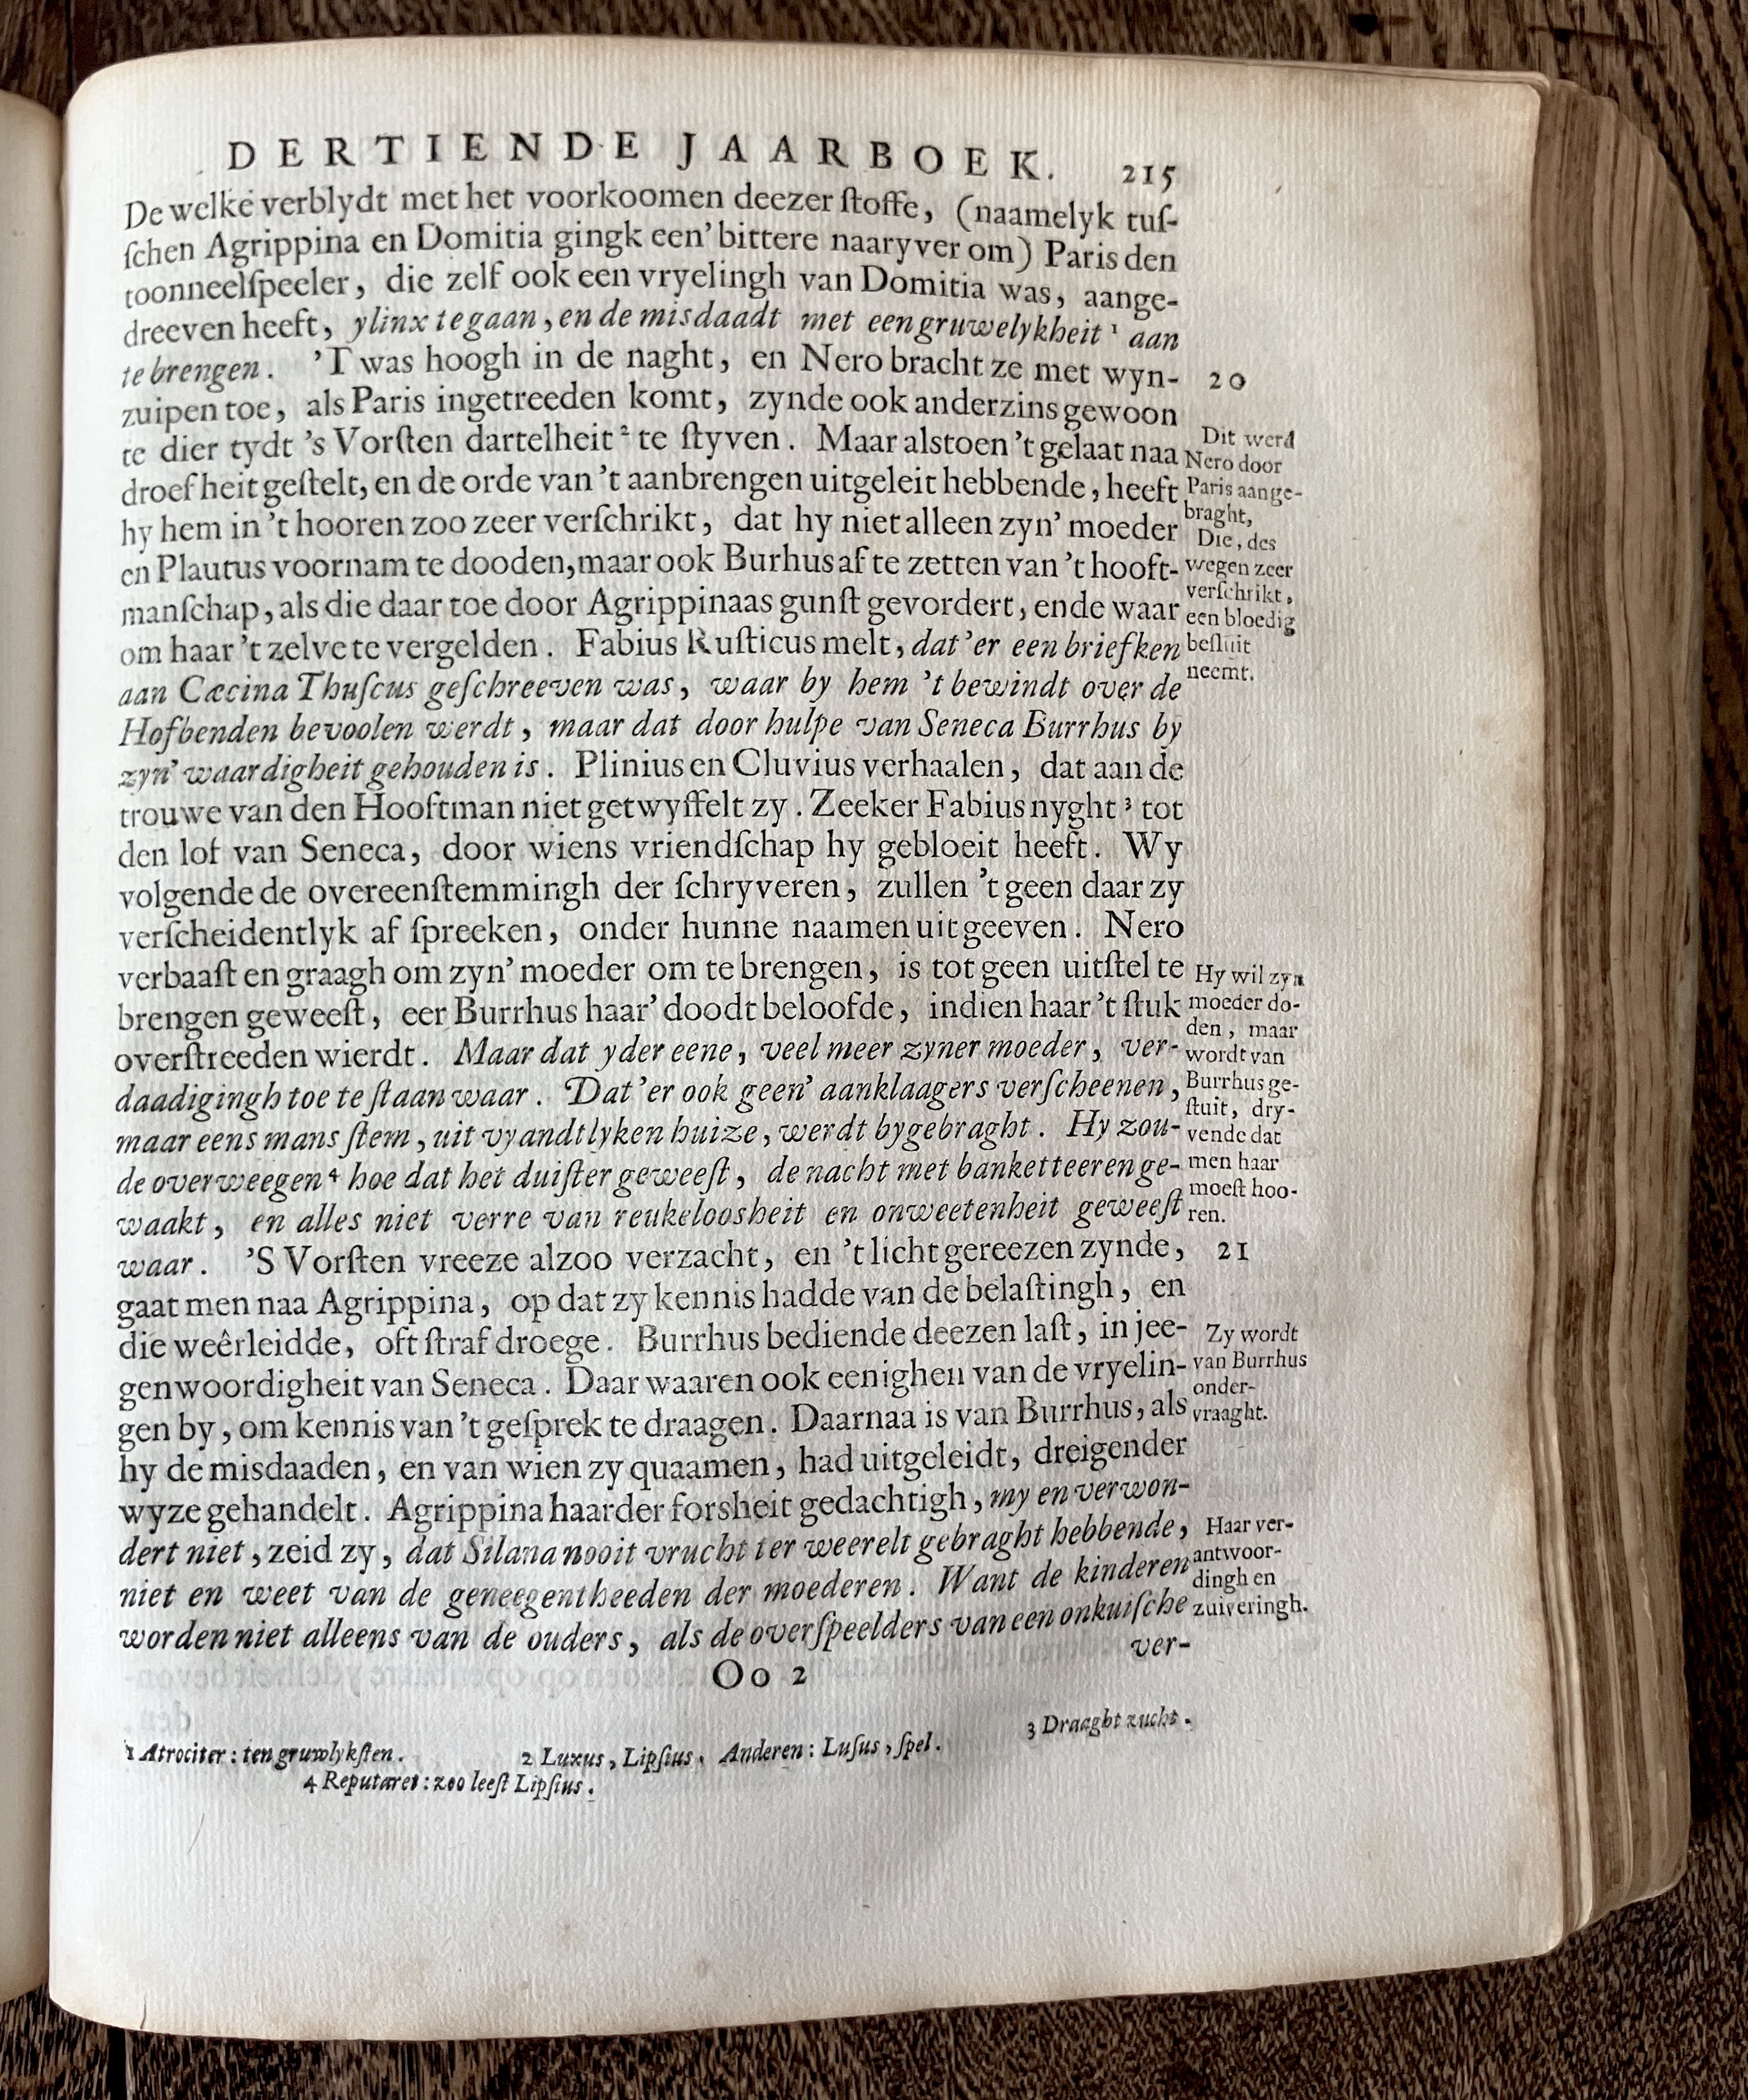 DERTIENDE JAARBOEK. 215
De welke verblydt met het voorkoomen deezer ſtoffe, (naamelyk tuſ-
ſchen Agrippina en Domitia gingk een' bittere naaryver om) Paris den
toonneelſpeeler, die zelf ook een vryelingh van Domitia was, aange-
dreeven heeft, ylinx te gaan, en de misdaadt met een gruwelykheit ¹ aan
te brengen. 'T was hoogh in de naght, en Nero bracht ze met wyn-
zuipen toe, als Paris ingetreeden komt, zynde ook anderzins gewoon
te dier tydt 's Vorſten dartelheit ² te ſtyven. Maar alstoen 't gelaat naa
droefheit geſtelt, en de orde van 't aanbrengen uitgeleit hebbende, heeft
hy hem in 't hooren zoo zeer verſchrikt, dat hy niet alleen zyn' moeder
en Plautus voornam te dooden, maar ook Burhus af te zetten van 't hooft-
manſchap, als die daar toe door Agrippinaas gunſt gevordert, ende waar
om haar 't zelve te vergelden. Fabius Ruſticus melt, dat'er een briefken
aan Cæcina Thuſcus geſchreeven was, waar by hem 't bewindt over de
Hofbenden bevoolen werdt, maar dat door hulpe van Seneca Burrhus by
zyn' waardigheit gehouden is. Plinius en Cluvius verhaalen, dat aan de
trouwe van den Hooftman niet getwyffelt zy. Zeeker Fabius nyght ³ tot
den lof van Seneca, door wiens vriendſchap hy gebloeit heeft. Wy
volgende de overeenſtemmingh der ſchryveren, zullen 't geen daar zy
verſcheidentlyk af ſpreeken, onder hunne naamen uitgeeven. Nero
verbaaſt en graagh om zyn' moeder om te brengen, is tot geen uitſtel te
brengen geweeſt, eer Burrhus haar' doodt beloofde, indien haar 't ſtuk
overſtreeden wierdt. Maar dat yder eene, veel meer zyner moeder, ver-
daadigingh toe te ſtaan waar. Dat'er ook geen' aanklaagers verſcheenen,
maar eens mans ſtem, uit vyandtlyken huize, werdt bygebraght. Hy zou-
de overweegen ⁴ hoe dat het duiſter geweeſt, de nacht met banketteeren ge-
waakt, en alles niet verre van reukeloosheit en onweetenheit geweeſt
waar. 'S Vorſten vreeze alzoo verzacht, en 't licht gereezen zynde,
gaat men naa Agrippina, op dat zy kennis hadde van de belaſtingh, en
die weêrleidde, oft ſtraf droege. Burrhus bediende deezen laſt, in jee-
genwoordigheit van Seneca. Daar waaren ook eenighen van de vryelin-
gen by, om kennis van 't geſprek te draagen. Daarnaa is van Burrhus, als
hy de misdaaden, en van wien zy quaamen, had uitgeleidt, dreigender
wyze gehandelt. Agrippina haarder forsheit gedachtigh, my en verwon-
dert niet, zeid zy, dat Silana nooit vrucht ter weerelt gebraght hebbende,
niet en weet van de geneegentheeden der moederen. Want de kinderen
worden niet alleens van de ouders, als de overſpeelders van een onkuiſche
ver-
Oo 2
20
Dit werd
Nero door
Paris aange-
braght,
Die, des
wegen zeer
verſchrikt,
een bloedig
beſluit
neemt.
Hy wil zyn
moeder do-
den, maar
wordt van
Burrhus ge-
ſtuit, dry-
vende dat
men haar
moeſt hoo-
ren.
21
Zy wordt
van Burrhus
onder-
vraaght.
Haar ver-
antwoor-
dingh en
zuiveringh.
1 Atrociter: ten gruwlykſten. 2 Luxus, Lipſius. Anderen: Luſus, ſpel. 3 Draaght zucht.
4 Reputaret: zoo leeſt Lipſius.